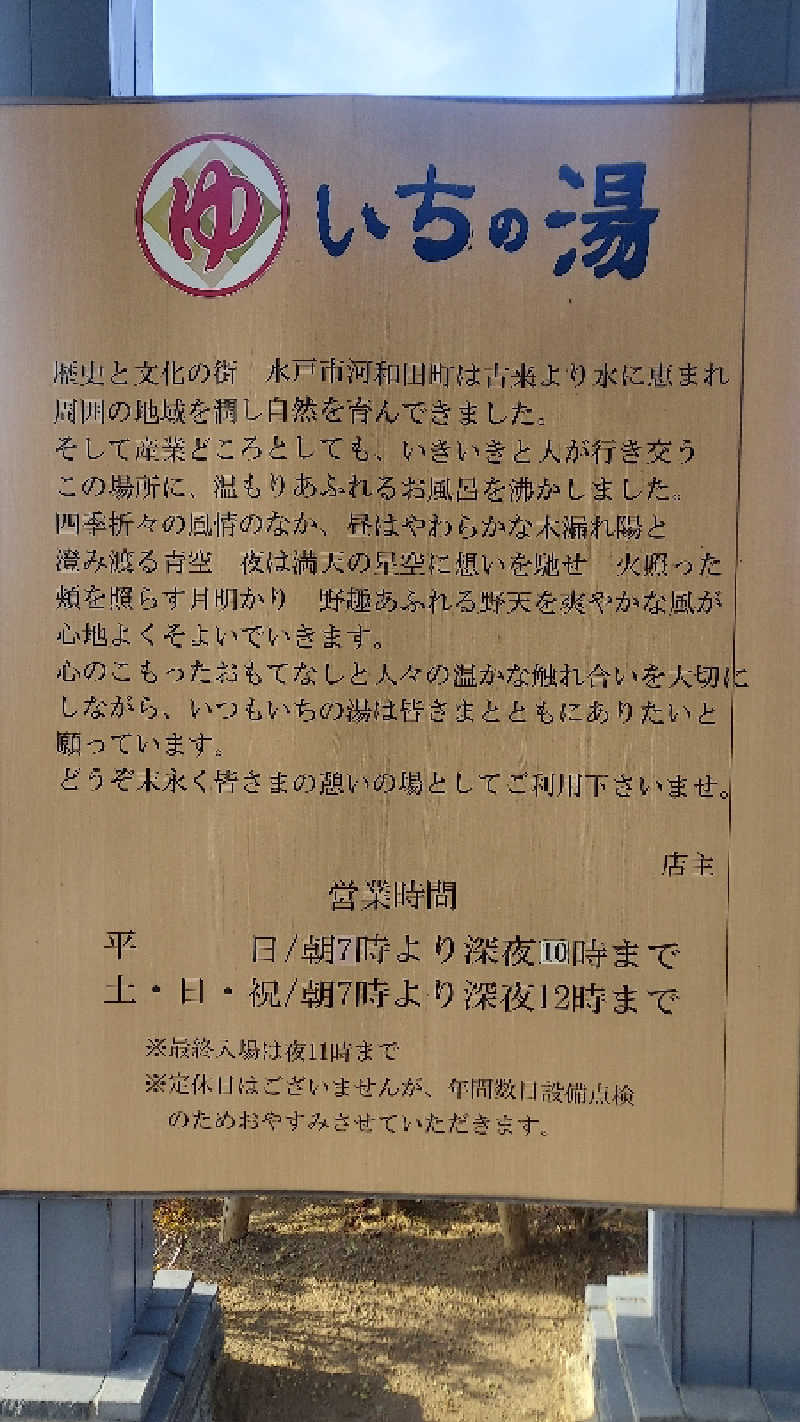 ゆ いちの湯
歴史と文化の街　水戸市河和田町は古来より水に恵まれ
周囲の地域を潤し自然を育んできました。
そして産業どころとしても、いきいきと人が行き交う
この場所に、温もりあふれるお風呂を沸かしました。
四季折々の風情のなか、昼はやわらかな木漏れ陽と
澄み渡る青空　夜は満天の星空に想いを馳せ　火照った
頬を照らす月明かり　野趣あふれる野天を爽やかな風が
心地よくそよいでいきます。
心のこもったおもてなしと人々の温かな触れ合いを大切に
しながら、いつもいちの湯は皆さまとともにありたいと
願っています。
どうぞ末永く皆さまの憩いの場としてご利用下さいませ。
店主
営業時間
平　　　日/朝7時より深夜10時まで
土・日・祝/朝7時より深夜12時まで
※最終入場は夜11時まで
※定休日はございませんが、年間数日設備点検
のためおやすみさせていただきます。